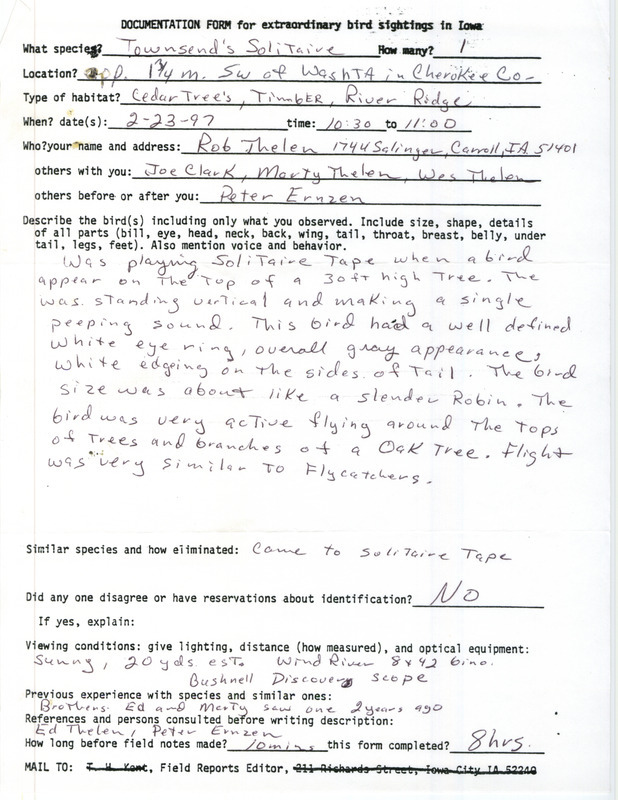 DOCUMENTATION FORM for extraordinary bird sightings in Iowa
What species? Townsend's Solitaire How many? 1
Location? App. 1 3/4 m. SW of WashTA in Cherokee Co-
Type of habitat? Cedar Tree's, TImbER, River Ridge
When? date(s): 2-23-97 time: 10:30 to 11:00
Who?your name and address: Rob Thelen 1744 Salinger, Carroll, IA. 51401
others with you: Joe Clark, Marty Thelen, Wes Thelen
others before or after you: Peter Ernzen
Describe the bird(s) including only what you observed. Include size, shape, details
of all parts (bill, eye, head, neck, back, wing, tail, throat, breast, belly, under
tail, legs, feet). Also mention voice and behavior.
Was playing Solitaire Tape when a bird
appear on The Top of a 30ft high Tree. The
was standing vertical and making a single
peeping sound. This bird had a well defined
white eye ring, overall gray appearance,
white edgeing on the sides of Tail. The bird
size was about like a slender Robin. The
bird was very active flying around The Tops
of Trees and branches of a Oak Tree. Flight
was very similar To Flycatchers.
Similar species and how eliminated: Came to solitaire Tape
Did any one disagree or have reservations about identification? No
If yes, explain:
Viewing conditions: give lighting, distance (how measured), and optical equipment:
Sunny, 20 yds. est. Wind River 8x42 bino.
Bushnell Discovery scope
Previous experience with species and similar ones:
Brothers Ed and Marty saw one 2 years ago
References and persons consulted before writing description:
Ed Thelen, Peter Ernzen
How long before field notes made? 10 mins this form completed? 8 hrs.
MAIL TO: T. H. Kent, Field Reports Editor, 211 Richards Street, Iowa City IA 52240